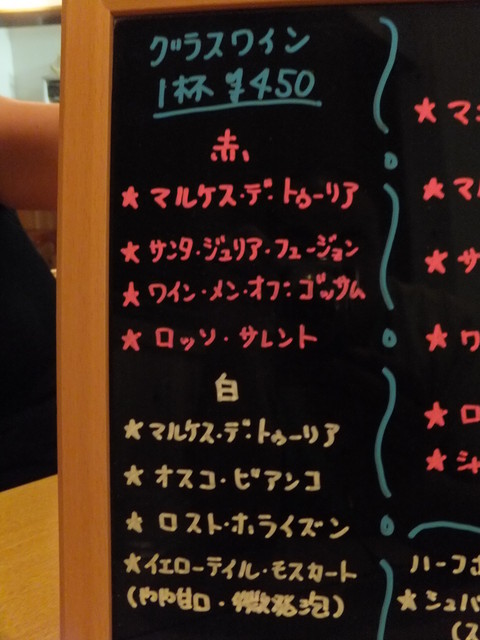 グラスワイン
1杯 ¥450
赤
★ マルケス・デ・トゥーリア
★ サンタ・ジュリア・フュージョン
★ ワイン・メン・オブ・ゴッサム
★ ロッソ・サレント
白
★ マルケス・デ・トゥーリア
★ オスコ・ビアンコ
★ ロスト・ホライズン
★ イエローテイル・モスカート
(やや甘口・微発泡)
★ マ
★ マル
★ サ
★ ワ
★ ロ
★ シャ
ハーフボ
★ シュバ
(ス